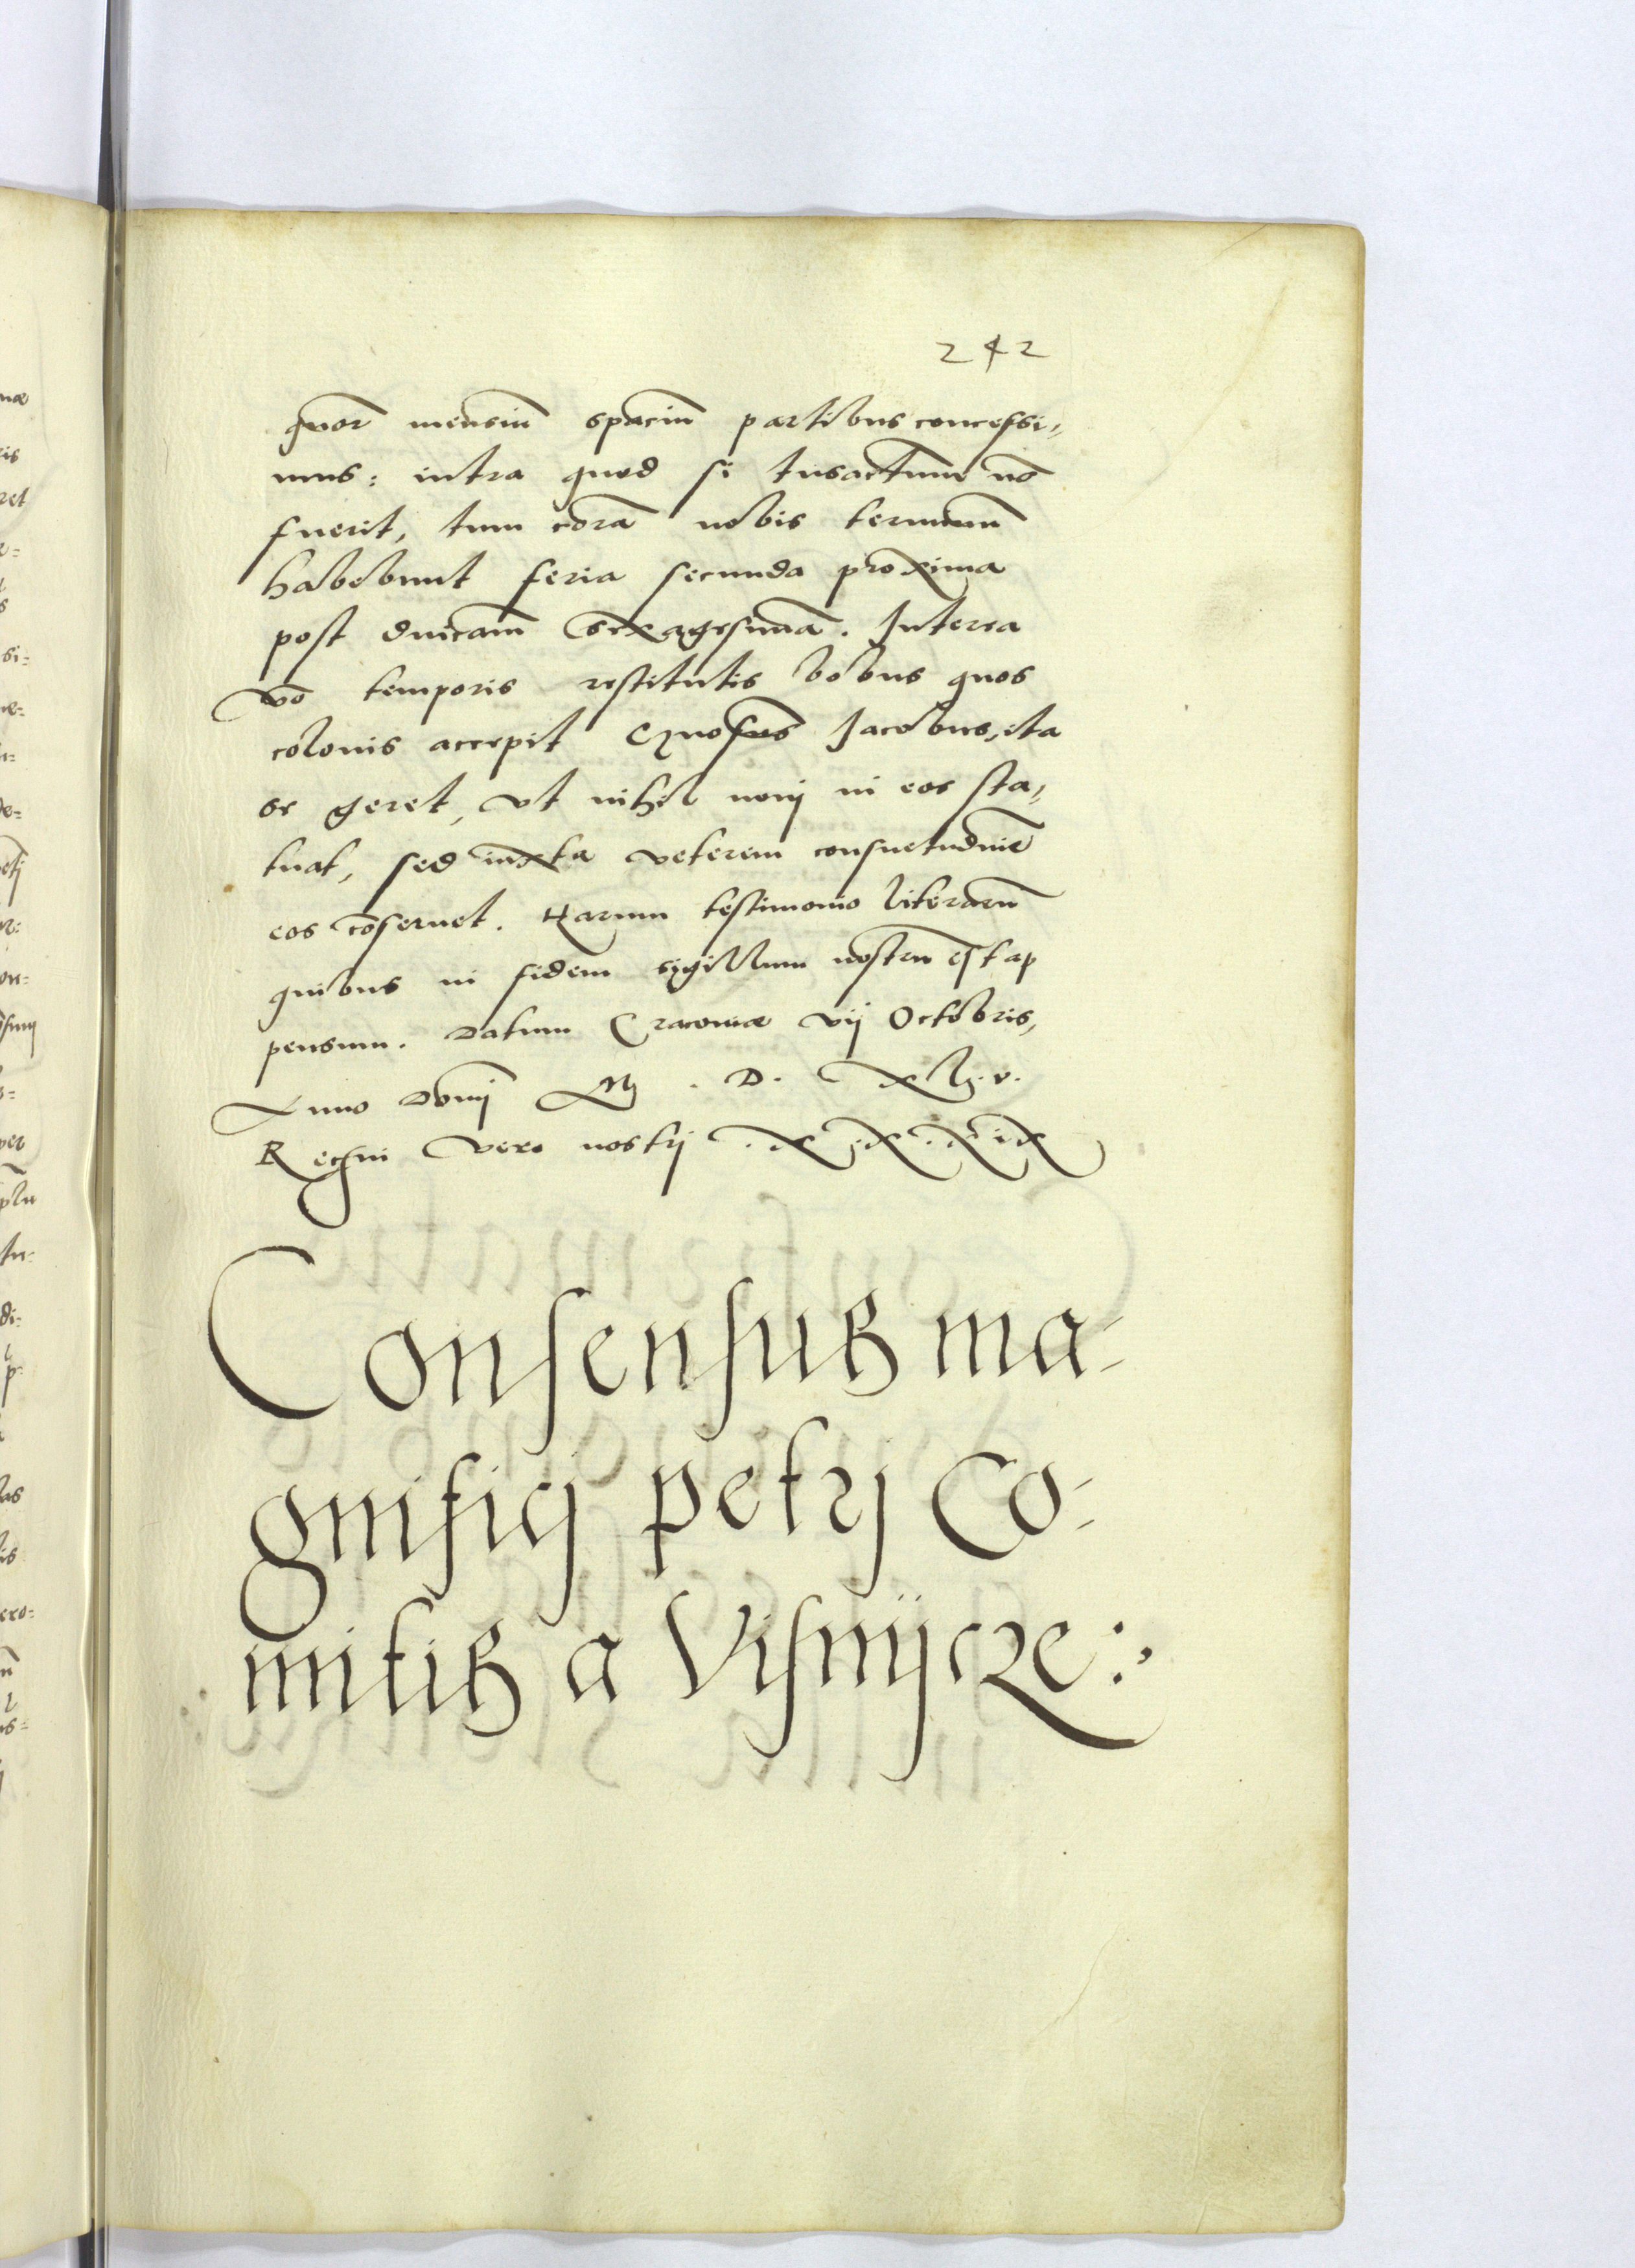 242
quor̄ mensiū spaciū partibus concessi=
mus: intra quod si trāsactum nō
fuerit, tum corā nobis terminū
habebunt feria secunda proxima
post dnicam̄ Sexagesimā. Interea
vō temporis restitutis bobus quos
colonis accepit Jacobus, ita
se geret, vt nihil novi in eos sta=
tuat, sed iuxta veterem consuetudinē
eos cōseruet. Harum testimonio literarū
quibus in fidem sigillum nostrū est ap
pensum. Datum Cracoviæ vij Octobris,
Anno Domī M. D. XL. v.
Regni vero nostrj .X.X.X.i.X
Consensus ma=
gnificj petrj Co=
mitis a Visnijcze: